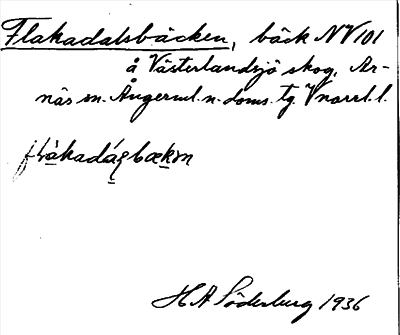 Flakadalsbäcken, bäck NV 101
å Västerlandsjö skog, Ar-
näs sn. Ångerml. n. doms. tg. V norrl. l.
H A Söderberg 1936